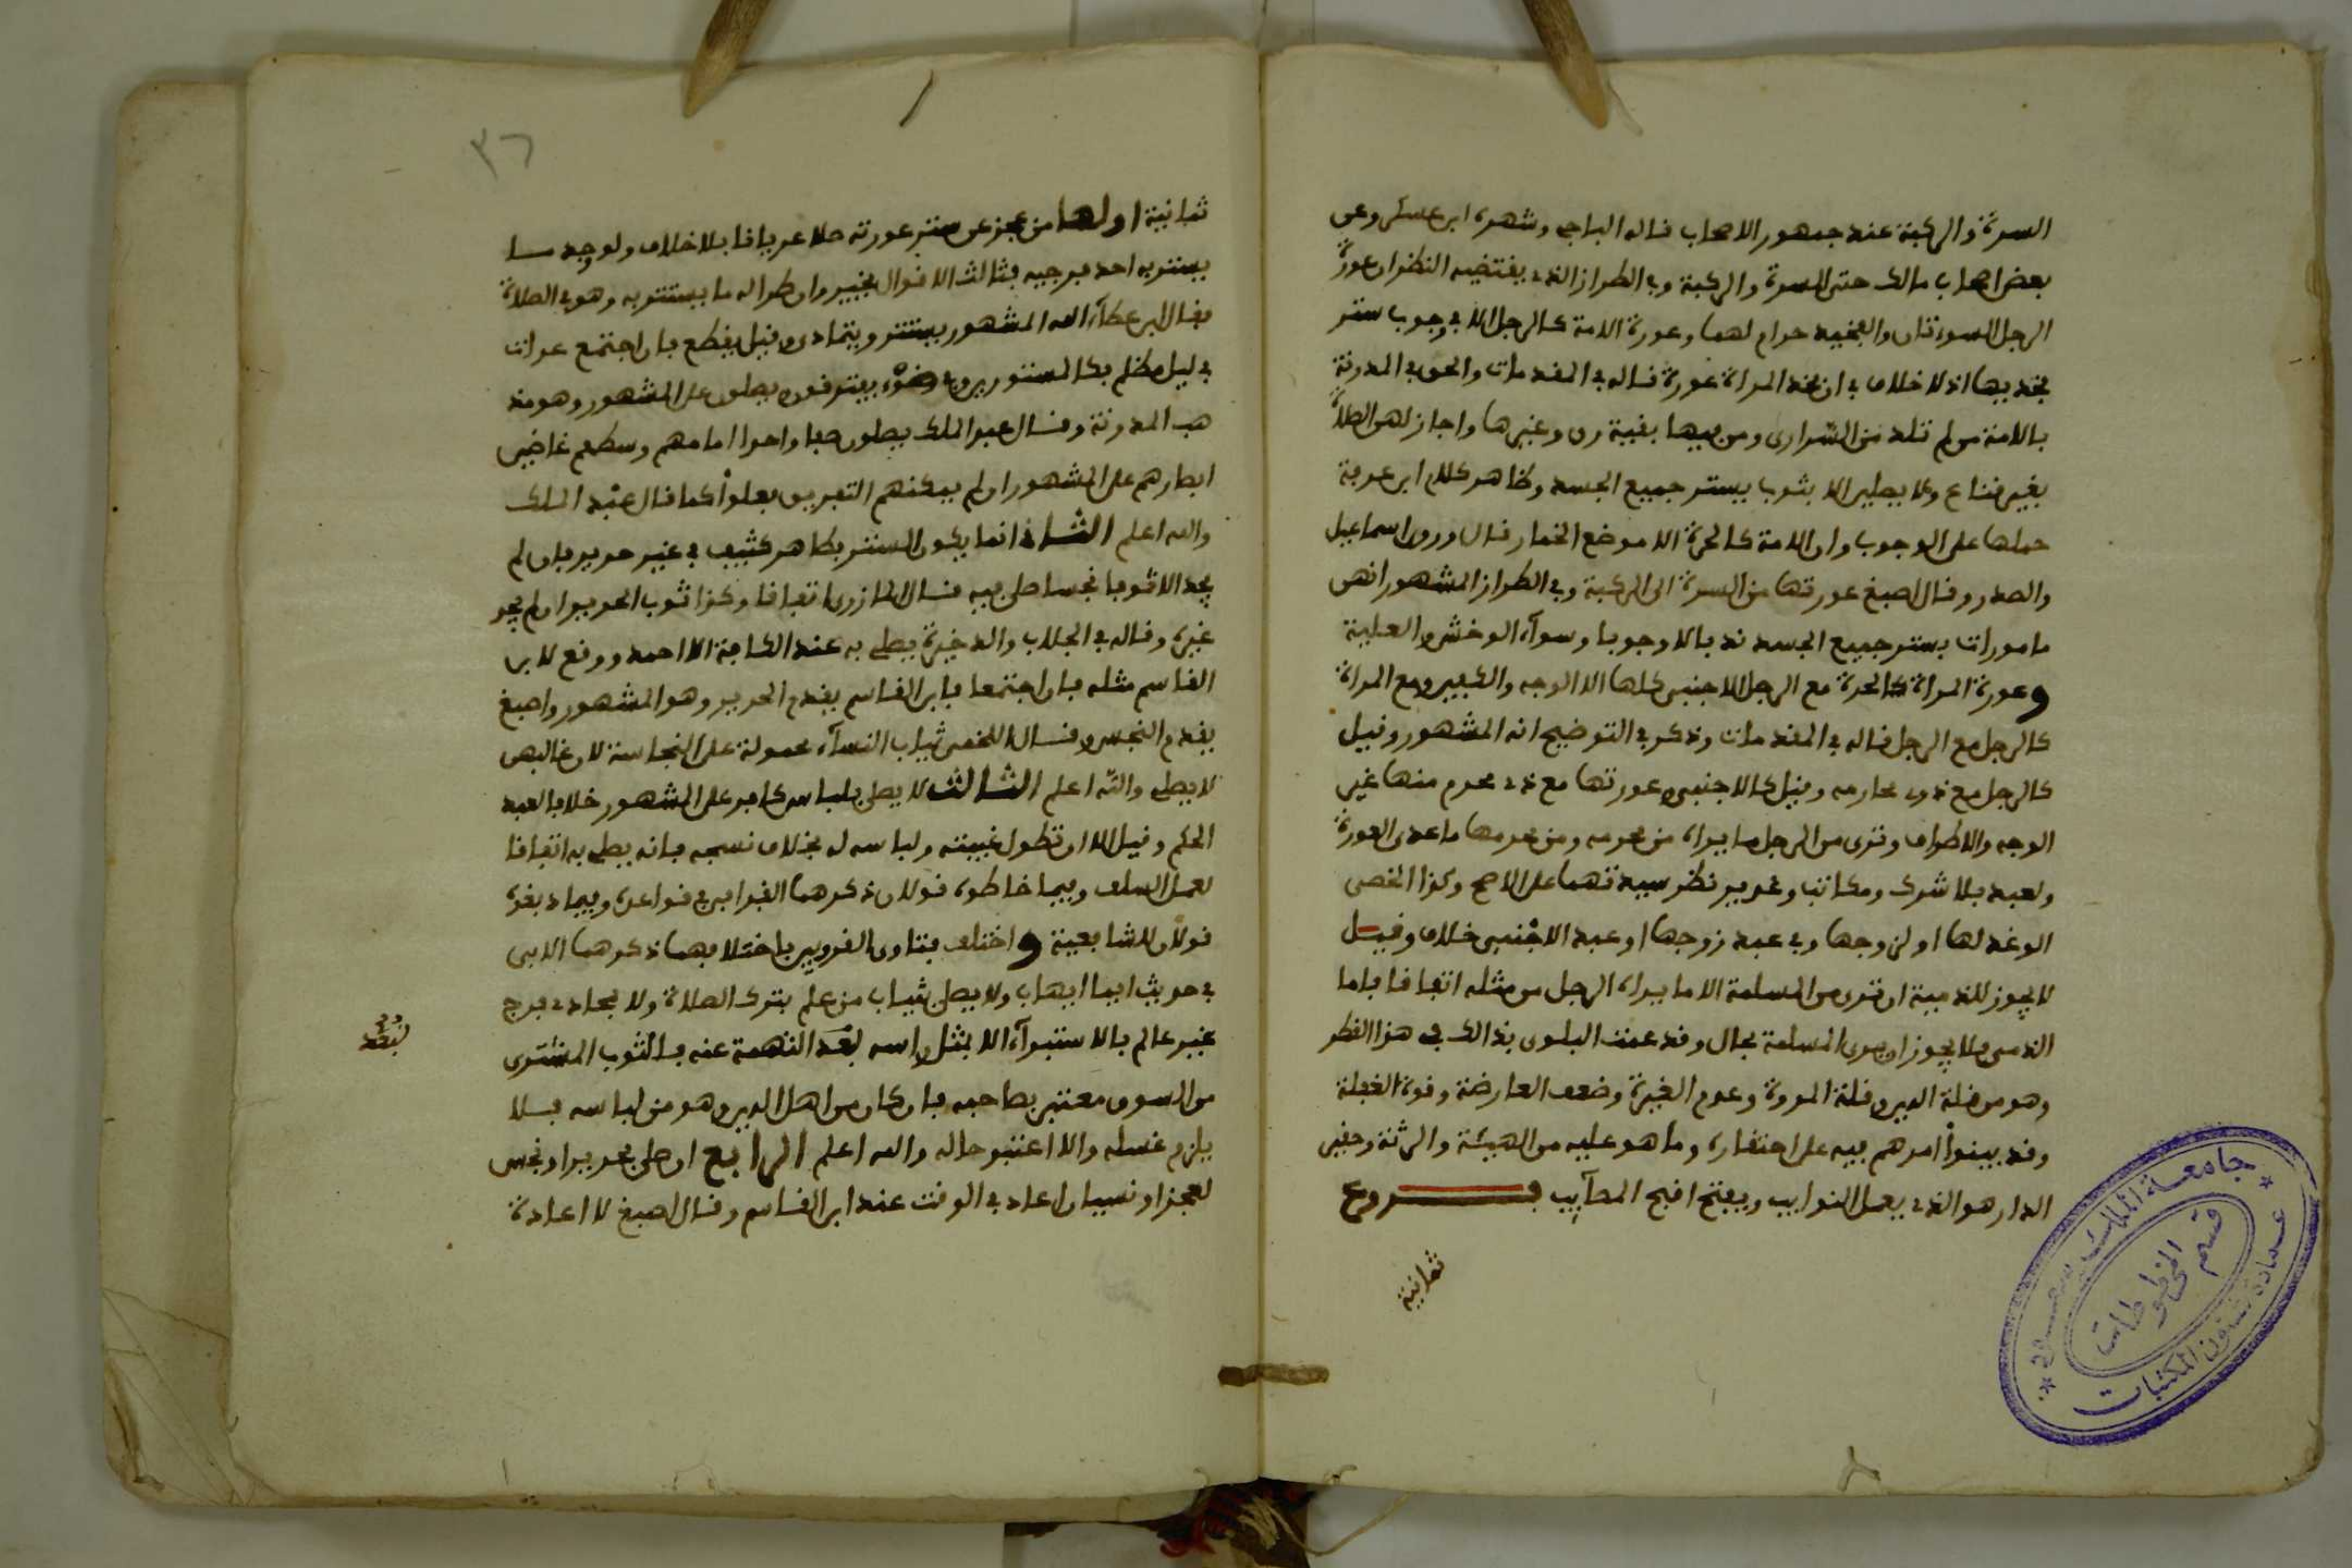 السرة والركبة عند جمهور الاصحاب قاله الباجي وشهره ابن عسكر وعن
بعض اصحاب مالك حتى السرة والركبة وفي الطراز الذي يقتضيه النظر ان عورة
الرجل السوءتان والفخذ حرام لهما وعورة الامة كالرجل الا في وجوب ستر
فخذيها اذ لا خلاف في ان فخذ المراة عورة قاله في المقدمات والحق في المدونة
بالامة من لم تلد من السراري ومن فيها بقية رق وغيرها واجاز لهن الصلاة
بغير قناع ولا يصلين الا بثوب يستر جميع الجسد وظاهر كلام ابن عرفة
حملها على الوجوب وان الامة كالحرة الا موضع الخمار قال وروى اسماعيل
والصدر وقال اصبغ عورتها من السرة الى الركبة وفي الطراز المشهور انهن
مامورات بستر جميع الجسد ندبا لا وجوبا وسوآء الوخش والعلية
وعورة المراة كالحرة مع الرجل الاجنبي كلها الا الوجه والكفين ومع المراة
كالرجل مع الرجل قاله في المقدمات وذكر في التوضيح انه المشهور وقيل
كالرجل مع ذوي محارمه وقيل كالاجنبي وعورتها مع ذي محرم منها غير
الوجه والاطراف وترى من الرجل ما يراه من محرمه ومن محرمها ما عدى العورة
ولعبد بلا شرك ومكاتب وغيرين نظر سيدتهما على الاصح وكذا الخصي
الوغد لها او لزوجها وفي عبد زوجها او عبد الاجنبي خلاف وقيل
لا يجوز للذمية ان ترى من المسلمة الا ما يراه الرجل من مثله اتفاقا فاما
الذمي فلا يجوز ان يرى المسلمة بحال وقد عمت البلوى بذالك في هذا القطر
وهو من قلة الدين وقلة المروة وعدم الغيرة وضعف العارضة وقوة الغفلة
وقد بينوا امرهم فيه على احتقاره وما هو عليه من الهيئة والرثة وحفير
الدار هو الذي يعمل النوايب ويفتح اقبح المصآيب فـــروع
ثمانية
٣٦
ثمانية اولها من عجز عن ستر عورته صلا عريانا بلا خلاف ولو وجد ما
يستر به احد فرجيه فثالث الاقوال يخير وان طرا له ما يستتر به وهو في الصلاة
فقال ابن عطآء الله المشهور يستتر ويتمادى وقيل يقطع فان اجتمع عرات
في ليل مظلم فكالمستورين وفي ضوء يتفرقون ويصلون على المشهور وهو مذ
هب المدونة وقال عبد الملك يصلون صفا واحدا امامهم وسطهم غاضين
ابصارهم على المشهور وان لم يمكنهم التفريق فعلوا كما قال عبد الملك
والله اعلم الثاني انما يكون الستر بطاهر كثيف في غير حرير فان لم
يجد الا ثوبا نجسا صلى فيه قال المازري اتفاقا وكذا ثوب الحرير ان لم يجد
غيره وقاله في الجلاب والذخيرة يصلي به عند الكافة الا احمد ووقع لابن
القاسم مثله فان اجتمعا فابن القاسم يقدم الحرير وهو المشهور واصبغ
يقدم النجس وقال اللخمي ثياب النسآء محمولة على النجاسة لان غالبهن
لا يصلي والله اعلم الثالث لا يصلى بلباس كافر على المشهور خلافا لعبد
الحكم وقيل الا ان تطول غيبته ولباسه له بخلاف نسجه فانه يصلى به اتفاقا
لعمل السلف وفيما خاطوه قولان ذكرهما القرافي في قواعده وفيما دبغوه
قولان للشافعية واختلف فتاوى القرويين باختلافهما ذكرهما الابي
في حديث ايما ايهاب ولا يصلى بثياب من علم بترك الصلاة ولا بمحاذي فرج
غير عالم بالاستبرآء الا بمثل راسه لبعد التهمة عنه فالثوب المشترى
من السوق معتبر بصاحبه فان كان من اهل الدين وهو من لباسه فلا
يلزم غسله والا اعتبر حاله والله اعلم الرابع ان صلى بحرير او نجس
لعجز او نسيان اعاد في الوقت عند ابن القاسم وقال اصبغ لا اعادة
لبعد
جامعة الملك سعود
عمادة شئون المكتبات
قسم المخطوطات